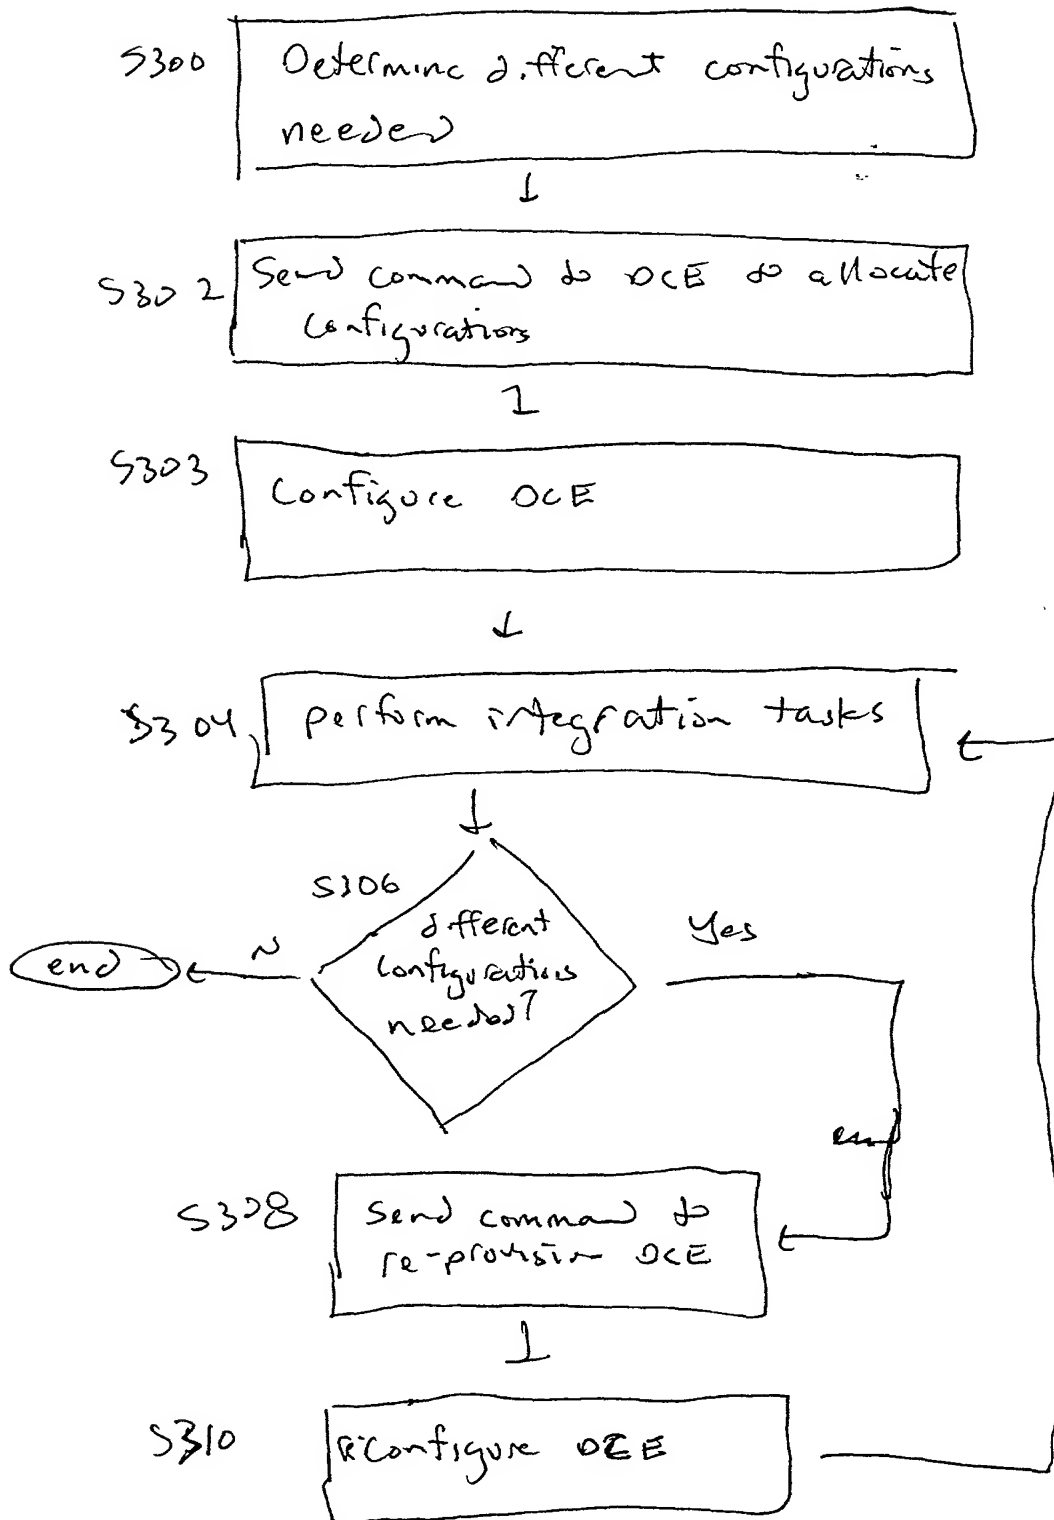 S300
Determine different configurations
needed
S302
Send command to DCE to allocate
configurations
S303
Configure DCE
S304
perform integration tasks
S306
different
configurations
needed?
N
end
Yes
S308
Send command to
re-provision DCE
S310
DCE